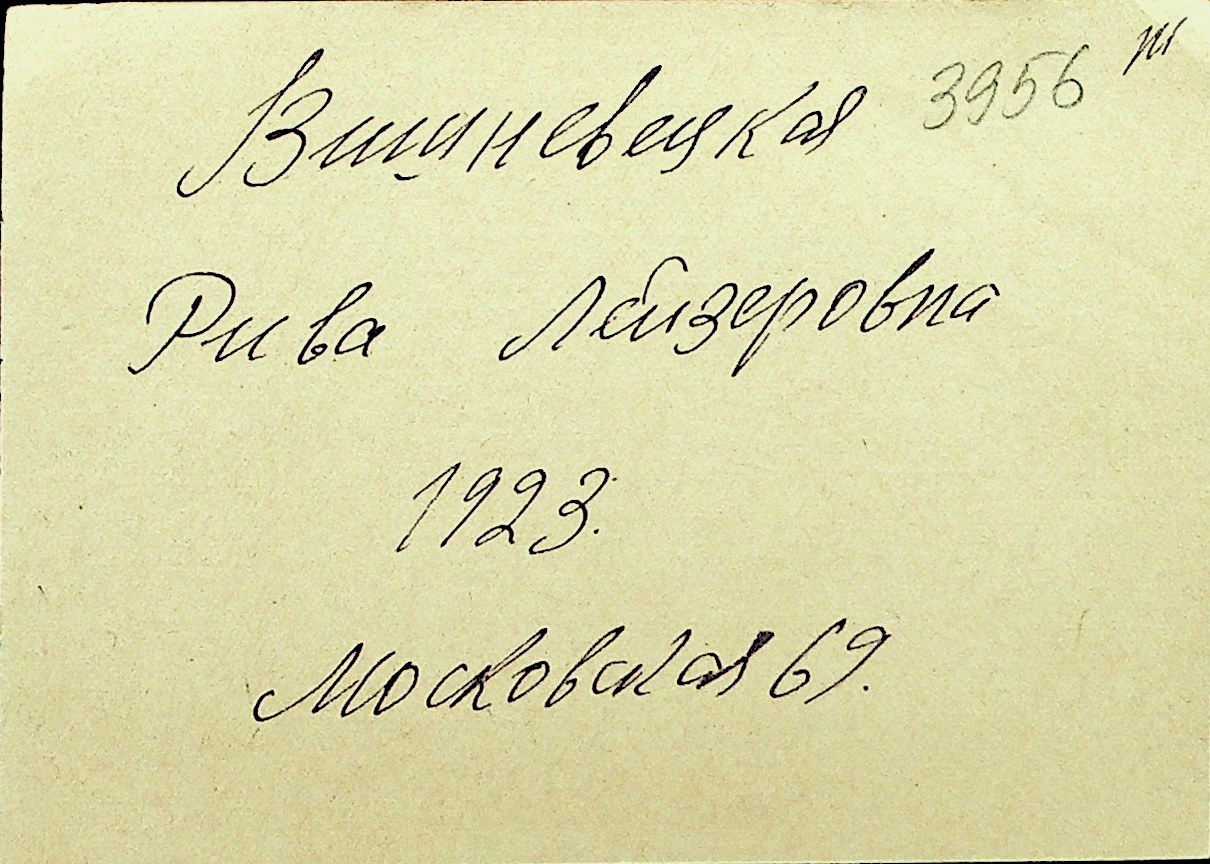 Вишневецкая 3956
Рива Лейзеровна
1923.
Московская 69.